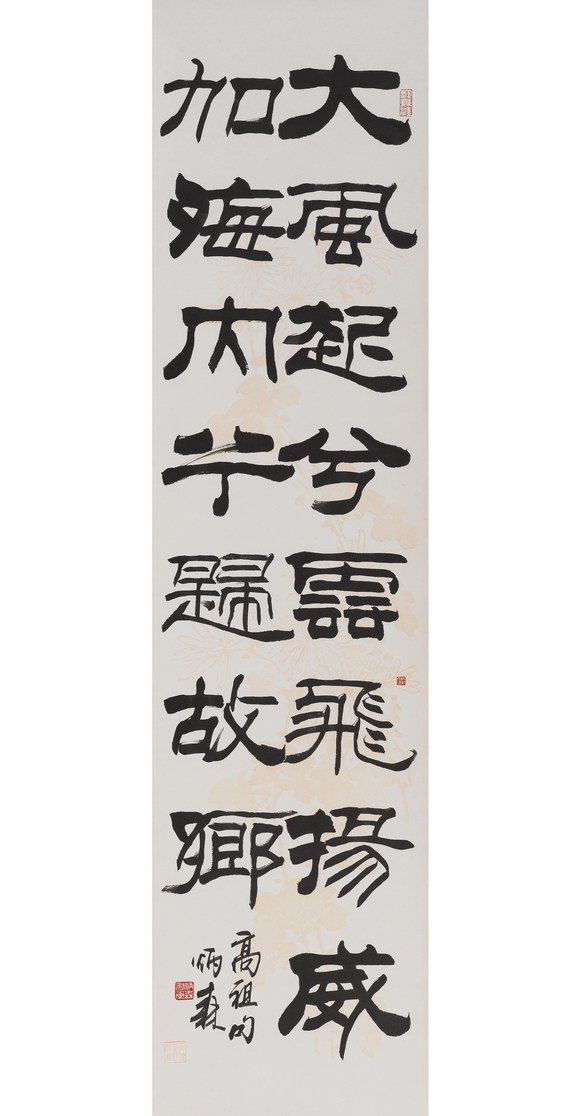 大風起兮雲飛揚威
加海內兮歸故鄉
高祖句
炳森